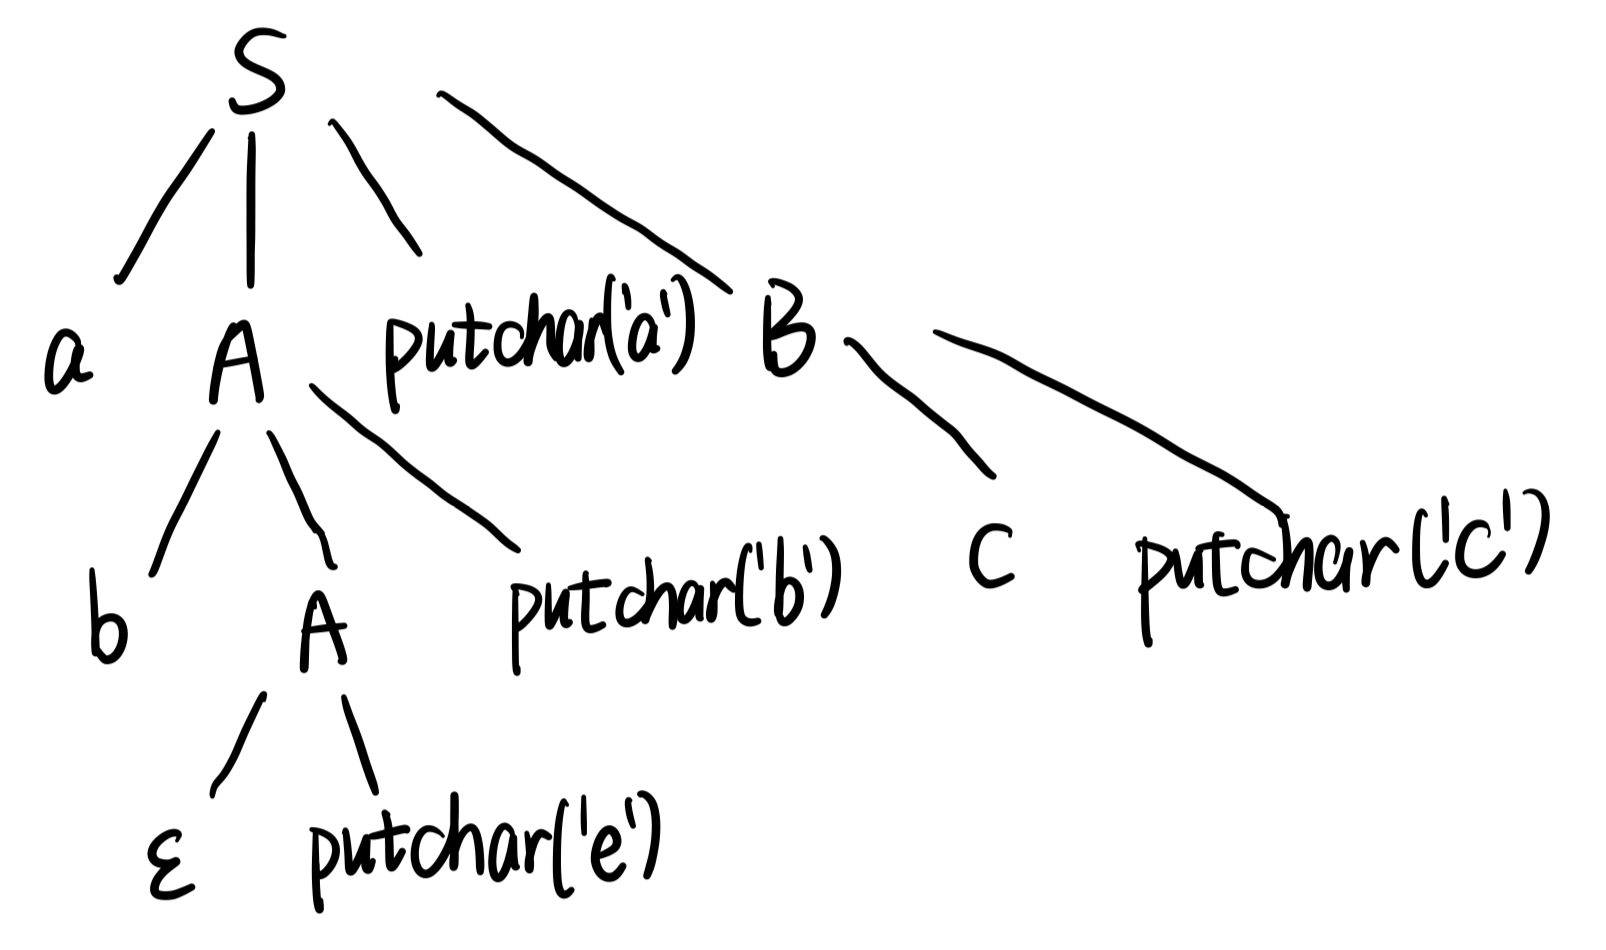 S
a A putchar('a') B
b A putchar('b') C putchar('c')
ε putchar('e')